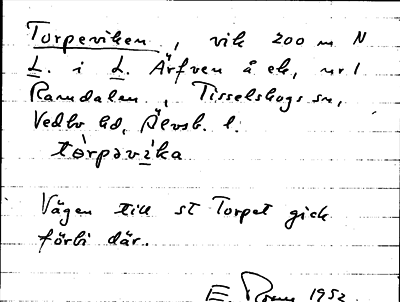 Torpeviken, vik 200 m N
L. i L. Ärfven å ek, nr 1
Ramdalen, Tisselskogs sn,
Vedbo hd, Älvsb. l.
tòrpəvìka
Vägen till st Torpet gick
förbi där.
E. 1952